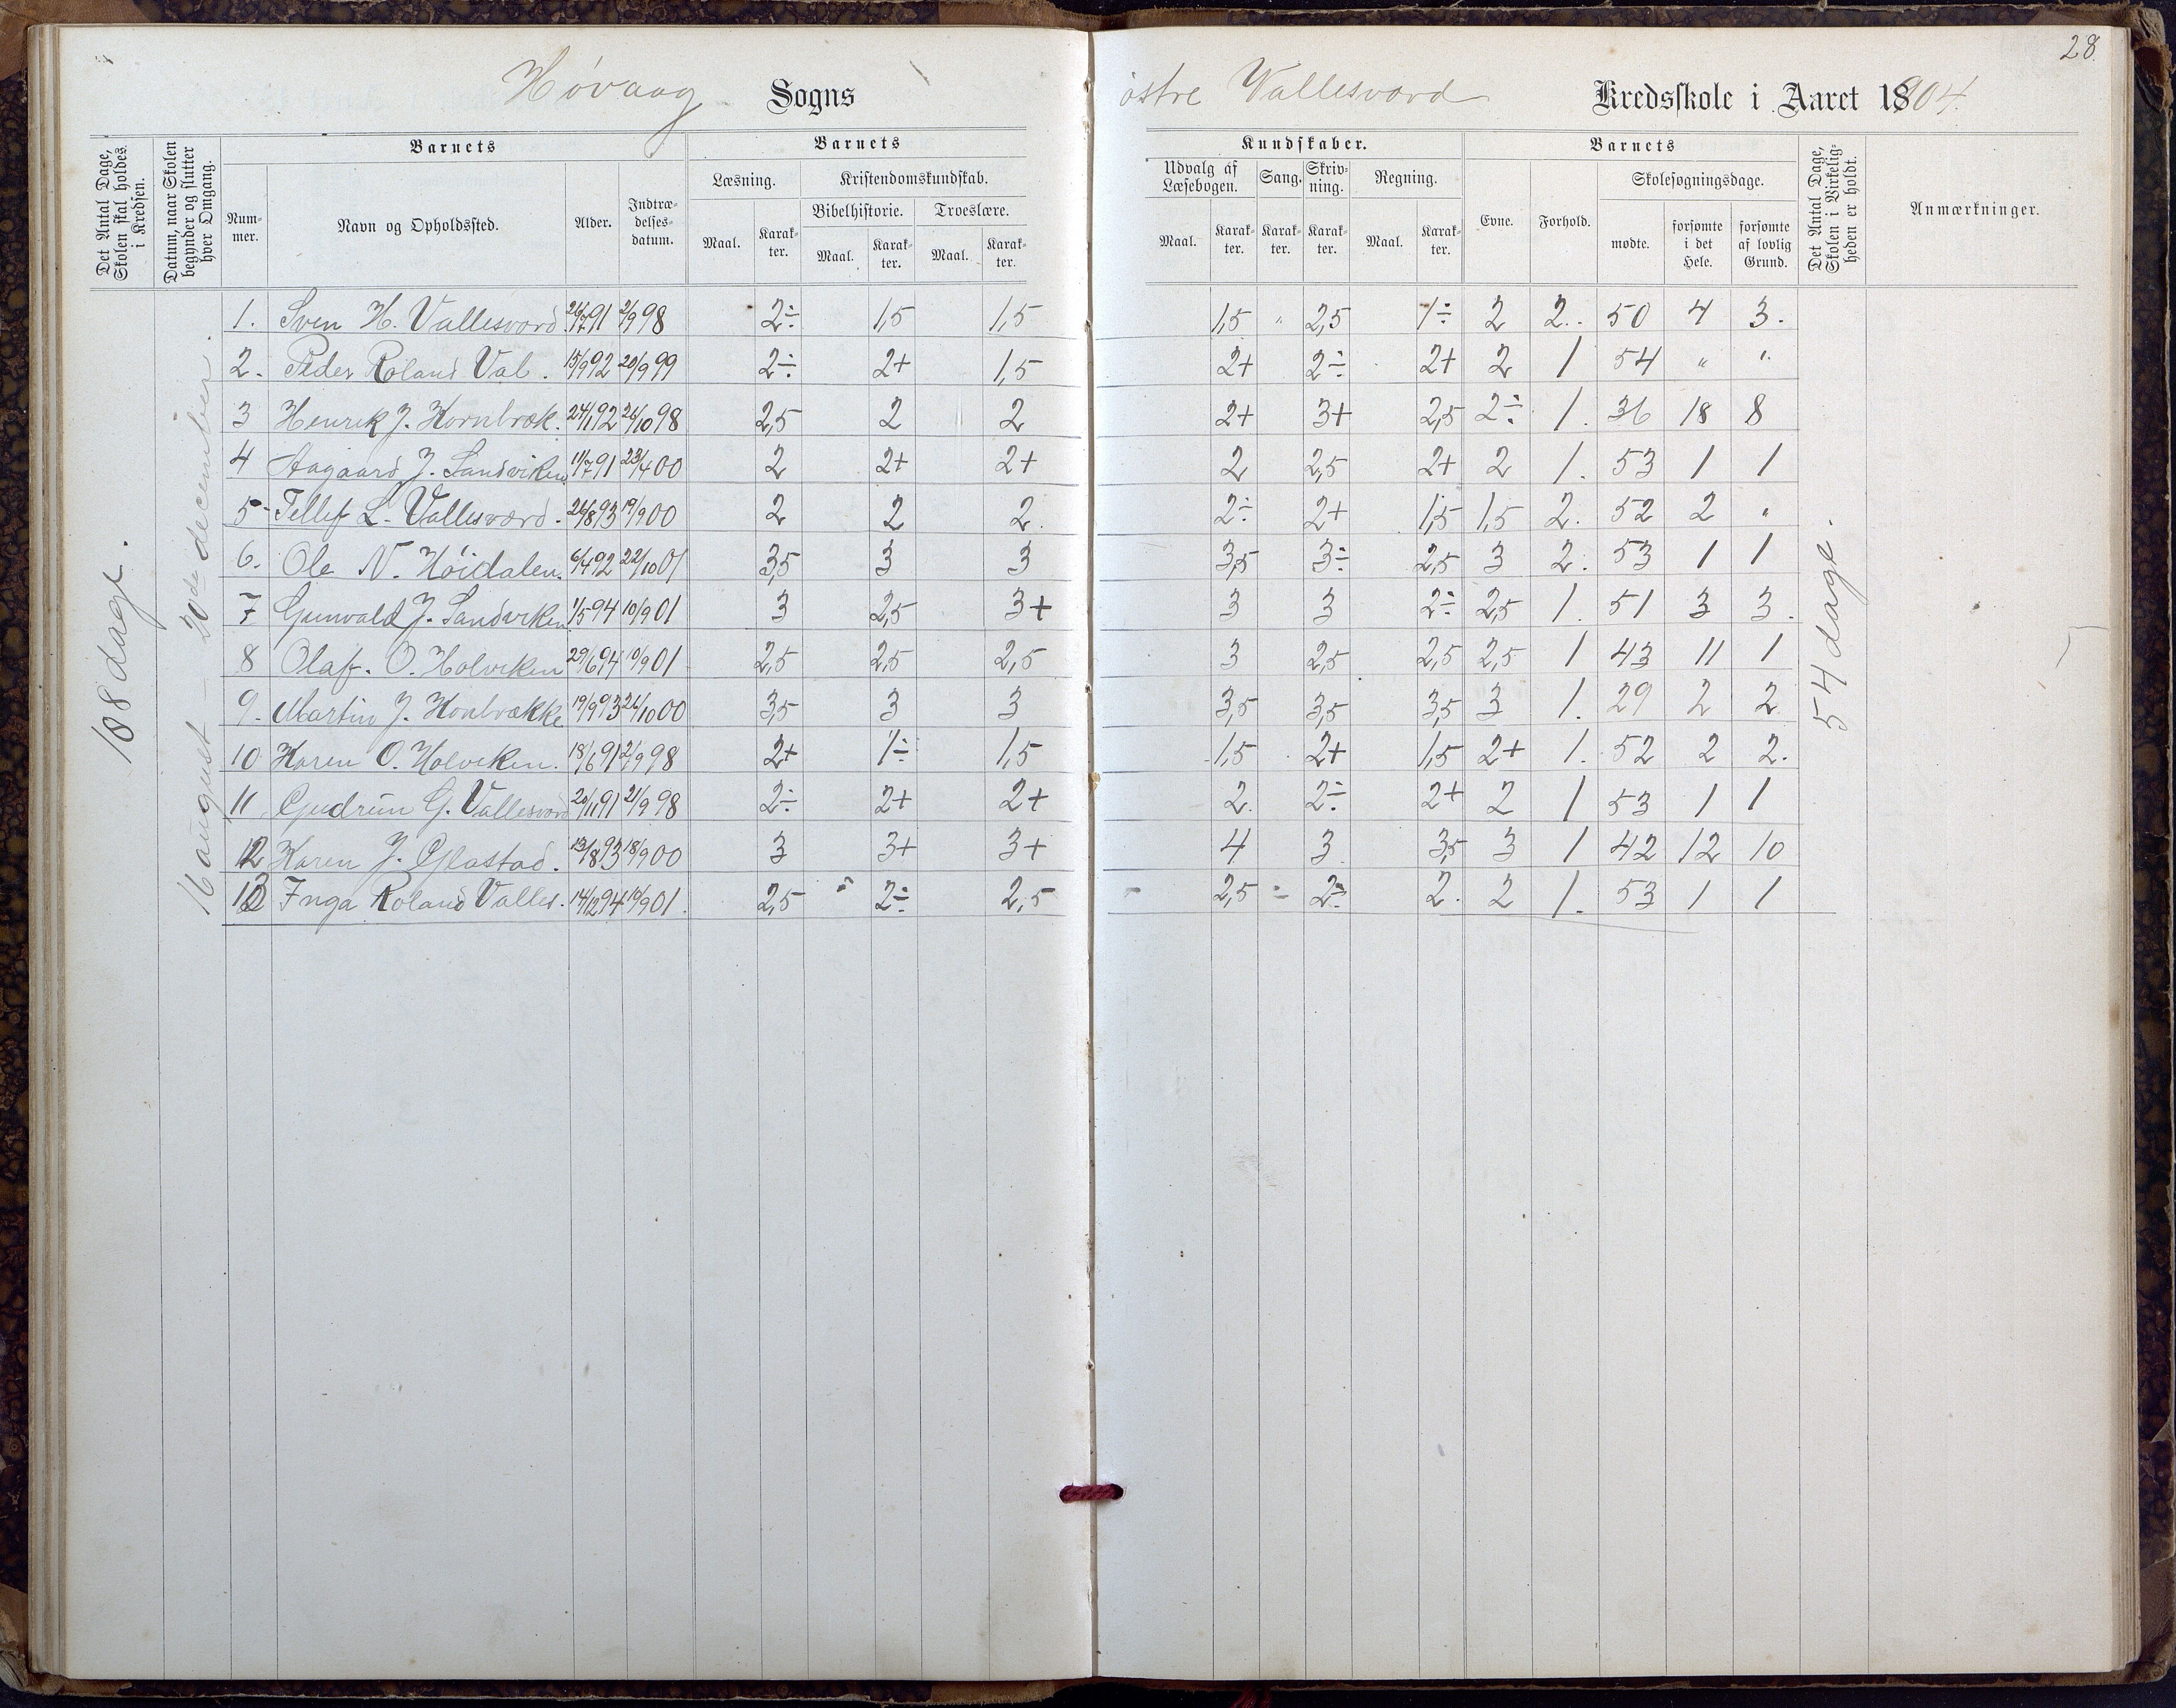 28
Høvaag Sogns østre Vallesværd Kredsskole i Aaret 1904.
Det Antal Dage, Skolen skal holdes i Kredsen.
Datum, naar Skolen begynder og slutter hver Omgang.
Barnets
Num-mer.
Navn og Opholdssted.
Alder.
Indtræ-delses-datum.
Barnets
Læsning.
Kristendomskundskab.
Bibelhistorie.
Troeslære.
Maal.
Karak-ter.
Maal.
Karak-ter.
Maal.
Karak-ter.
Kundskaber.
Udvalg af Læsebogen.
Sang.
Skriv-ning.
Regning.
Maal.
Karak-ter.
Karak-ter.
Karak-ter.
Maal.
Karak-ter.
Barnets
Evne.
Forhold.
Skolesøgningsdage.
mødte.
forsømte i det Hele.
forsømte af lovlig Grund.
Det Antal Dage, Skolen i Virkelig-heden er holdt.
Anmærkninger.
108 dage.
16 august - 20de december.
1. Sven H. Vallesværd. 26/7 91 2/9 98 2÷ 1,5 1,5 1,5 " 2,5 1÷ 2 2. 50 4 3.
2. Peder Roland Val. 15/9 92 20/9 99 2÷ 2+ 1,5 2+ 2÷ 2+ 2 1 54 " "
3 Henrik J. Kornbræk. 24/1 92 26/10 98 2,5 2 2 2+ 3+ 2,5 2÷ 1. 36 18 8
4 Aagaard J. Sandviken 11/7 91 23/4 00 2 2+ 2+ 2 2,5 2+ 2 1. 53 1 1
5 Tellef L. Vallesværd. 26/8 93 19/9 00 2 2 2. 2÷ 2+ 1,5 1,5 2. 52 2 "
6. Ole N. Høidalen. 6/4 92 22/10 01 3,5 3 3 3,5 3÷ 2,5 3 2. 53 1 1
7 Gunvald J. Sandviken 1/5 94 10/9 01 3 2,5 3+ 3 3 2÷ 2,5 1. 51 3 3.
8 Olaf. O. Holviken 29/6 94 10/9 01 2,5 2,5 2,5 3 2,5 2,5 2,5 1 43 11 1
9. Martin J. 19/9 93 26/10 00 3,5 3 3 3,5 3,5 3,5 3 1. 29 2 2
10 Karen O. Holviken. 18/6 91 2/9 98 2+ 1÷ 1,5 1,5 2+ 1,5 2+ 1. 52 2 2.
11 Gudrun G. Vallesværd 20/11 91 2/9 98 2÷ 2+ 2+ 2. 2÷ 2+ 2 1 53 1 1
12 Karen J. Glastad. 13/8 93 18/9 00 3 3+ 3+ 4 3 3,5 3 1 42 12 10
13 Inga Roland Valles. 14/12 94 10/9 01. 2,5 " 2÷ 2,5 2,5 2÷ 2. 2 1. 53 1 1
54 dage.